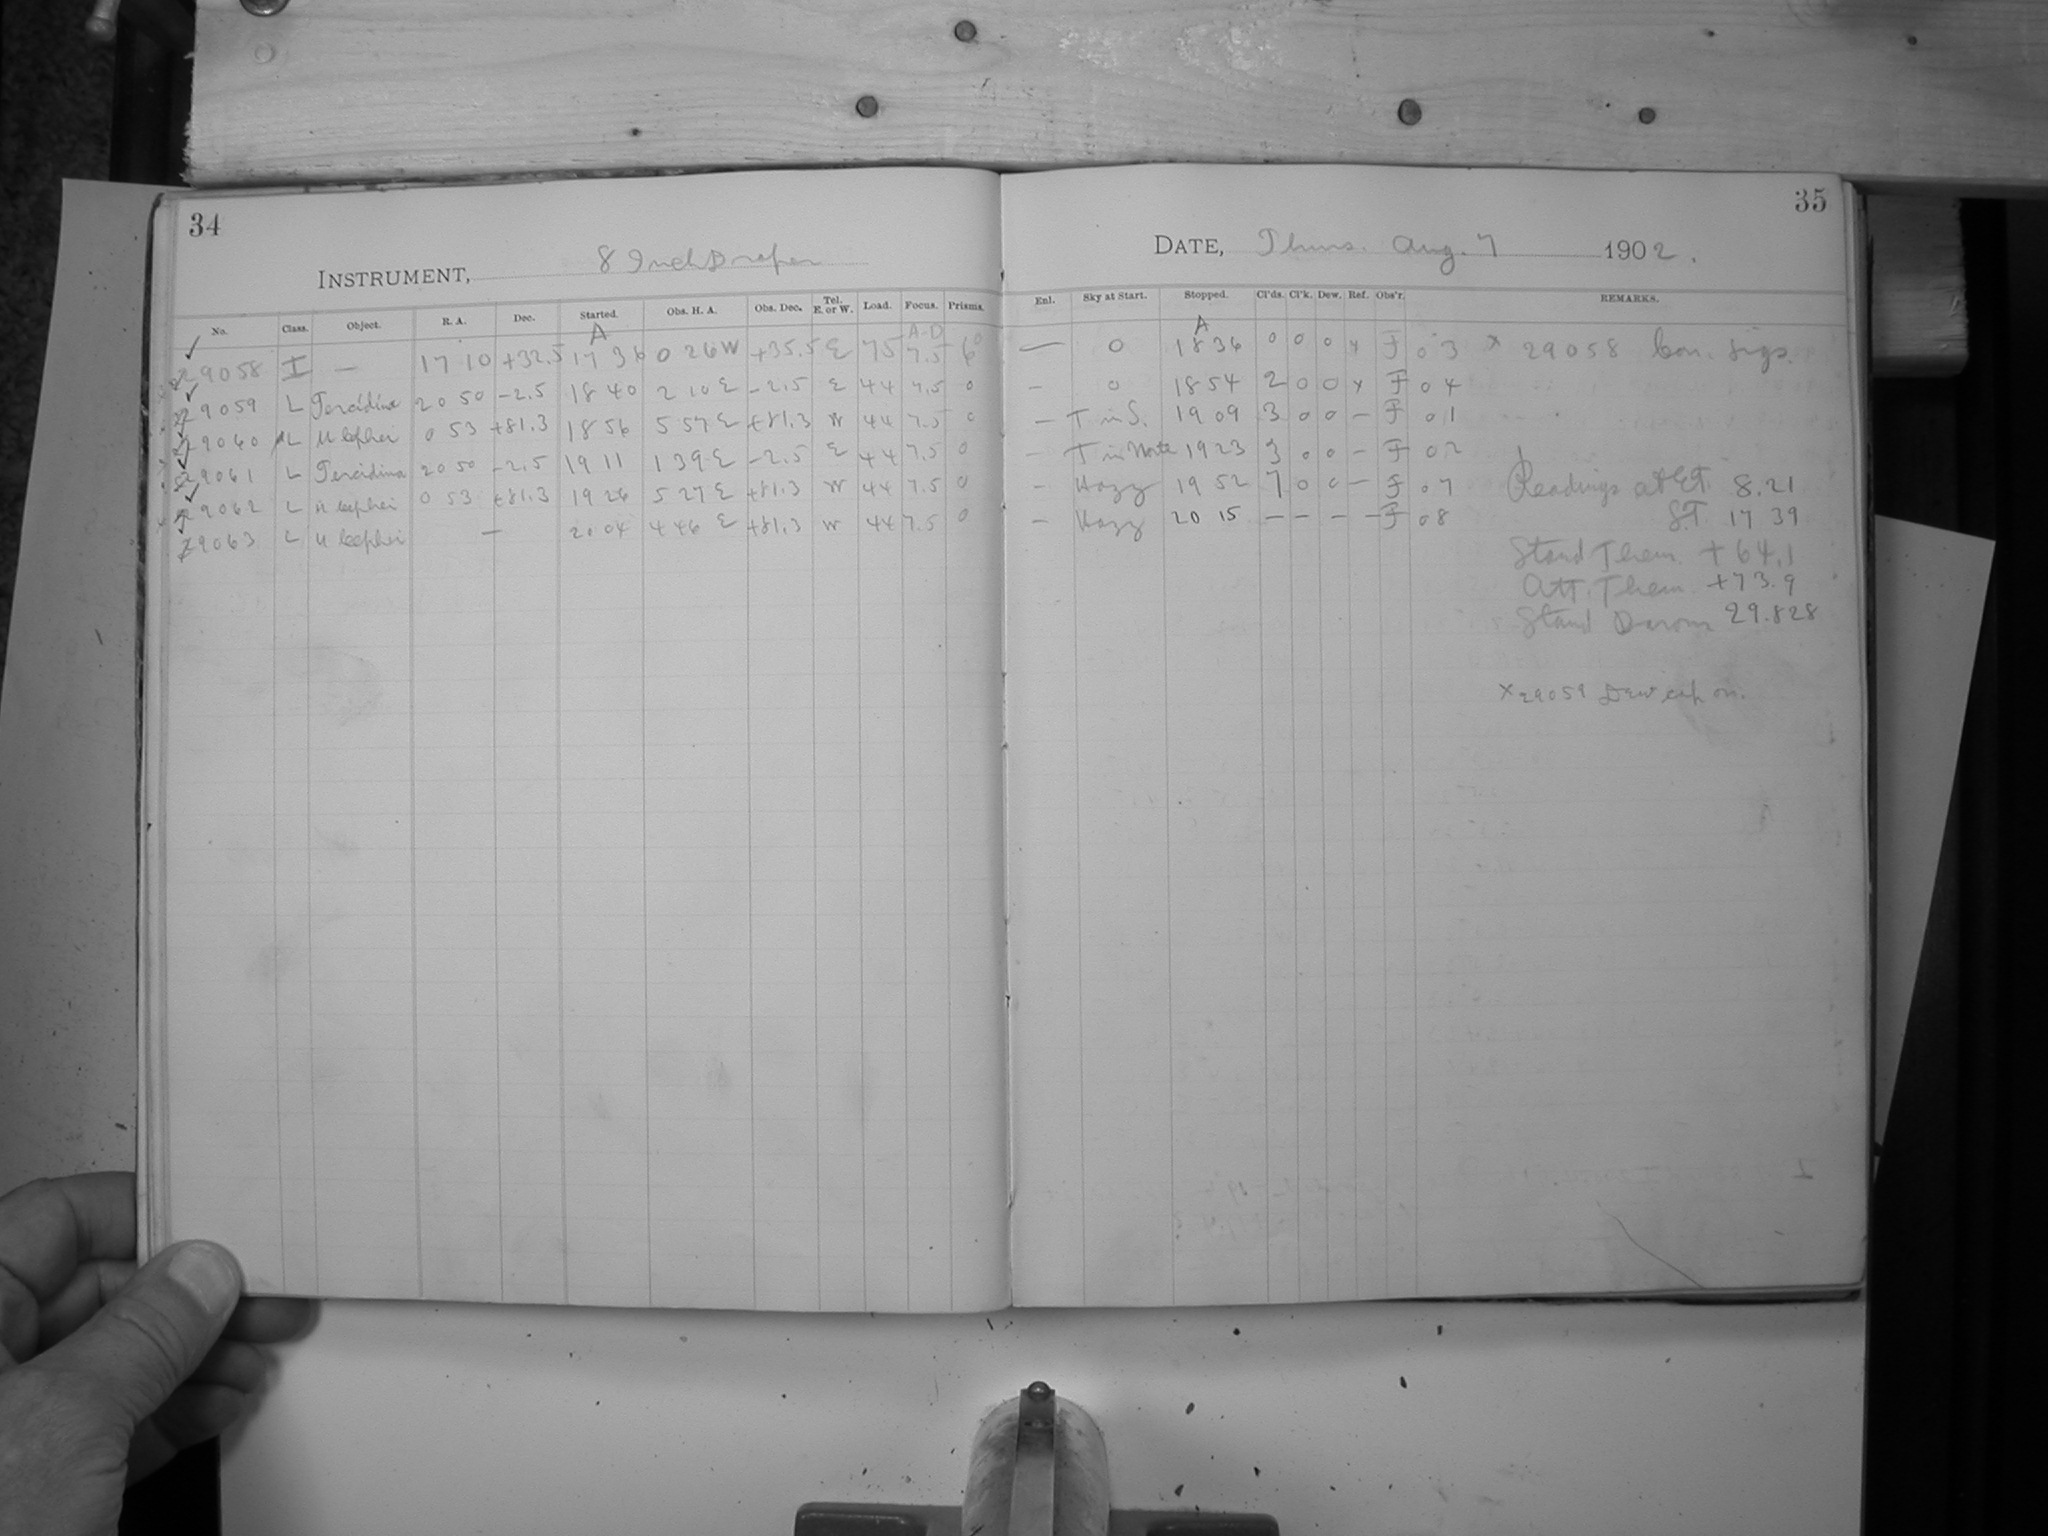 34
INSTRUMENT, 8 Inch Draper
No. Class. Object. R. A. Dec. Started. Obs. H. A. Obs. Dec. Tel. E. or W. Load. Focus. Prisms.
A A-D
29058 I — 17 10 +32.5 17 36 0 26 W +35.5 E 75 7.5 6°
29059 L Tercidina 20 50 -2.5 18 40 2 10 E -2.5 E 44 7.5 0
29060 L U Cephei 0 53 +81.3 18 56 5 57 E +81.3 W 44 7.5 0
29061 L Tercidina 20 50 -2.5 19 11 1 39 E -2.5 E 44 7.5 0
29062 L U Cephei 0 53 +81.3 19 26 5 27 E +81.3 W 44 7.5 0
29063 L U Cephei — 20 04 4 46 E +81.3 W 44 7.5 0
35
DATE, Thurs. Aug. 7 1902.
Enl. Sky at Start. Stopped. Cl'ds. Cl'k. Dew. Ref. Obs'r. REMARKS.
A
— 0 18 36 0 0 0 x F 03 x 29058 Con. Sigs.
— 0 18 54 2 0 0 x F 04
— T in S. 19 09 3 0 0 — F 01
— T in North 19 23 3 0 0 — F 02
— Hazy 19 52 7 0 0 — F 07 Readings at E.T. 8.21
— Hazy 20 15 — — — — F 08 S.T. 17 39
Stand Therm. +64.1
Att. Therm. +73.9
Stand Barom 29.828
x 29059 Dew cap on.